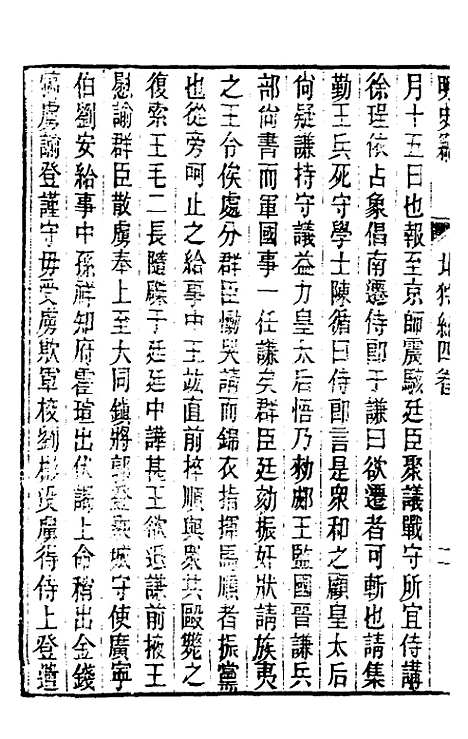 明史竊　北狩紀四卷　二
月十五日也報至京師震駭廷臣聚議戰守所宜侍講
徐珵依占象倡南遷侍郎于謙曰欲遷者可斬也請集
勤王兵死守學士陳循曰侍郎言是衆和之顧皇太后
尙疑謙持守議益力皇太后悟乃勑郕王監國晉謙兵
部尙書而軍國事一任謙矣群臣廷劾振奸狀請族夷
之王令俟處分群臣慟哭請而錦衣指揮馬順者振黨
也從旁呵止之給事中王竑直前捽順與衆共毆斃之
復索王毛二長隨斃于廷廷中譁甚王欲退謙前掖王
慰諭群臣散虜奉上至大同鎮將郭登乘城守使廣寧
伯劉安給事中孫祥知府霍瑄出伏謁上命稽出金錢
犒虜諭登謹守毋受虜欺軍校劉 虜得侍上登遣